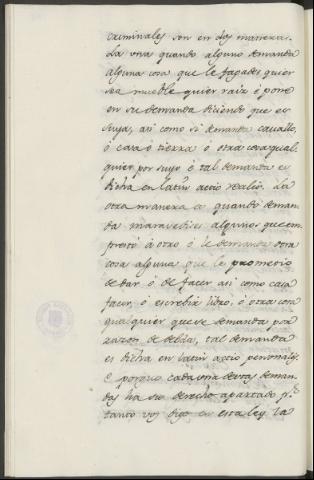 criminales son en dos maneras.
La una quando alguno demanda
alguna cosa que le fagades quier
sea mueble quier raiz ó pone
en su demanda diciendo que es
suya, asi como si demanda cavallo,
ó casa ó tierra ó otra cosa qual-
quier por suyo é tal demanda es
dicha en latin actio realis. La
otra manera es quando deman-
da maravedies algunos que em-
prestó á otro ó le demanda otra
cosa alguna que le prometió
de dar, ó de facer asi como casa
facer, ó escrebir libro, ó otra cosa
qualquier que se demanda por
razon de debda, tal demanda
es dicha en latin actio personalis.
E porque cada una destas deman-
das ha su derecho apartado p.r
tanto vos digo en esta ley la